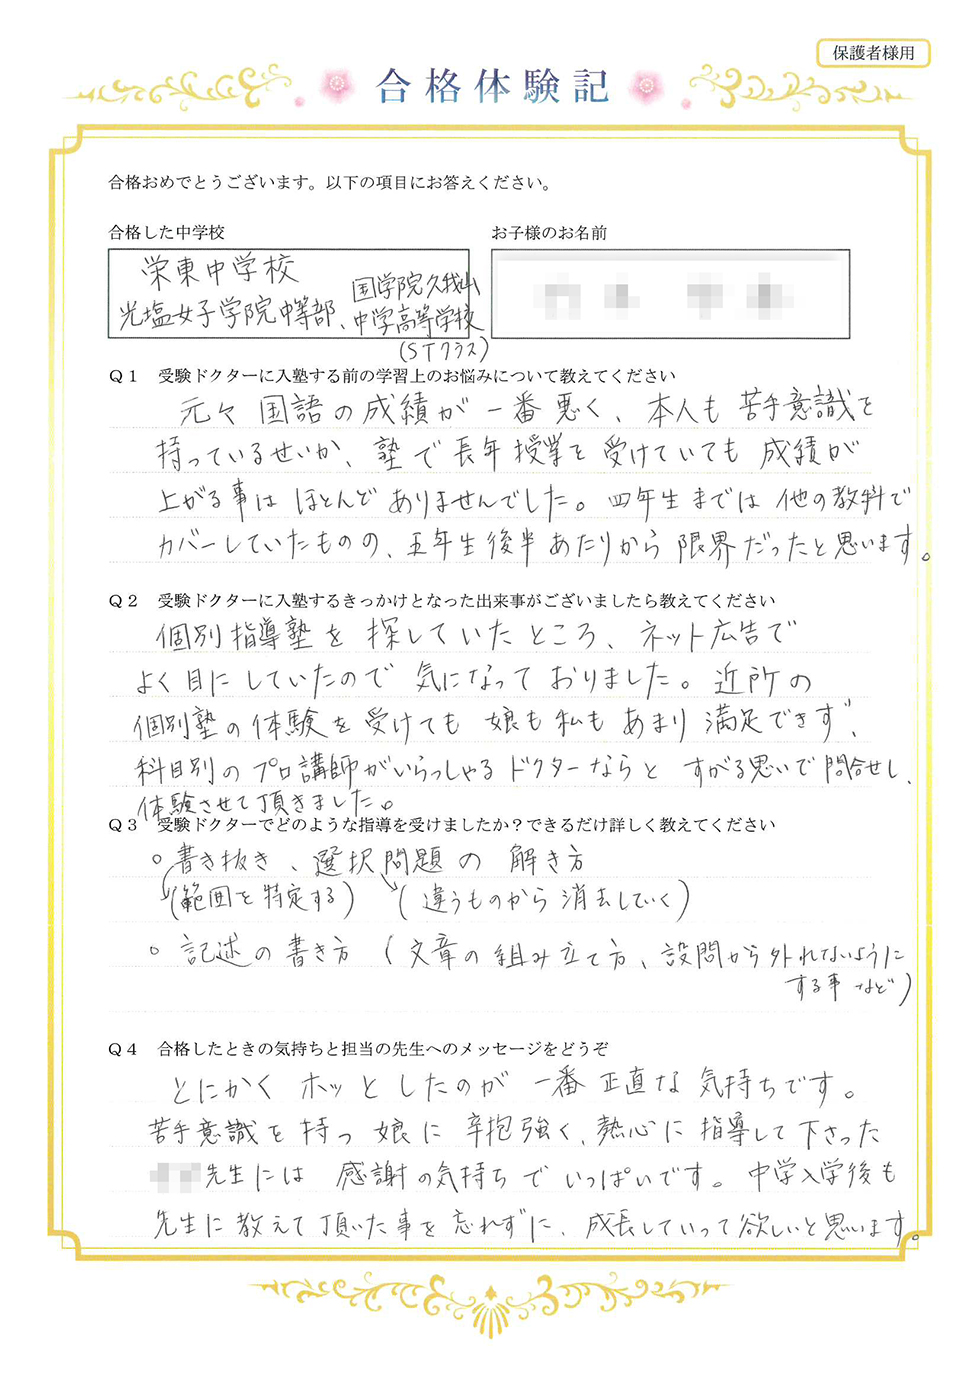 保護者様用
合格体験記
合格おめでとうございます。以下の項目にお答えください。
合格した中学校
お子様のお名前
栄東中学校
光塩女子学院中等部、国学院久我山
中学高等学校
(STクラス)
Q1 受験ドクターに入塾する前の学習上のお悩みについて教えてください
元々国語の成績が一番悪く、本人も苦手意識を
持っているせいか、塾で長年授業を受けていても成績が
上がる事はほとんどありませんでした。四年生までは他の教科で
カバーしていたものの、五年生後半あたりから限界だったと思います。
Q2 受験ドクターに入塾するきっかけとなった出来事がございましたら教えてください
個別指導塾を探していたところ、ネット広告で
よく目にしていたので気になっておりました。近所の
個別塾の体験を受けても娘も私もあまり満足できず、
科目別のプロ講師がいらっしゃるドクターならと すがる思いで問合せし、
体験させて頂きました。
Q3 受験ドクターでどのような指導を受けましたか？できるだけ詳しく教えてください
○書き抜き、選択問題の解き方
(範囲を特定する) (違うものから消去していく)
○ 記述の書き方 (文章の組み立て方、設問から外れないように
する事など)
Q4 合格したときの気持ちと担当の先生へのメッセージをどうぞ
とにかくホッとしたのが一番正直な気持ちです。
苦手意識を持つ娘に辛抱強く、熱心に指導して下さった
先生には感謝の気持ちでいっぱいです。中学入学後も
先生に教えて頂いた事を忘れずに、成長していって欲しいと思います。